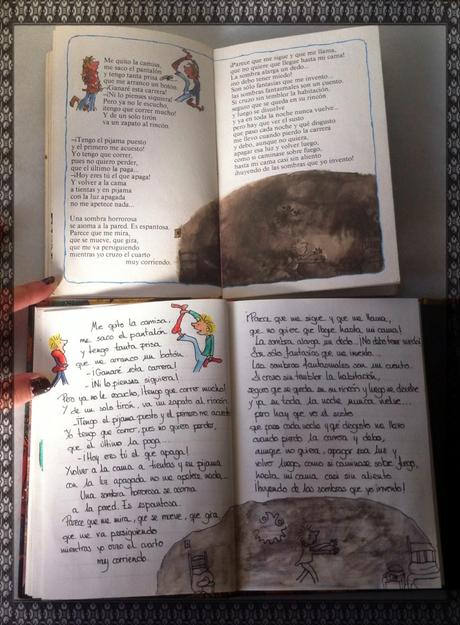 Me quito la camisa,
me saco el pantalón
y tengo tanta prisa
que me arranco un botón.
—¡Ganaré esta carrera!
—¡Ni lo pienses siquiera!
Pero ya no le escucho,
¡tengo que correr mucho!
Y de un solo tirón
va un zapato al rincón.
—¡Tengo el pijama puesto
y el primero me acuesto!
Yo tengo que correr,
pues no quiero perder,
que el último la paga...
—¡Hoy eres tú el que apaga!
Y volver a la cama
a tientas y en pijama
con la luz apagada
no me apetece nada...
Una sombra horrorosa
se asoma a la pared. Es espantosa.
Parece que me mira,
que se mueve, que gira,
que me va persiguiendo
mientras yo cruzo el cuarto
muy corriendo.
¡Parece que me sigue y que me llama,
que no quiere que llegue hasta mi cama!
La sombra alarga un dedo...
¡no debo tener miedo!
Son sólo fantasías que me invento...
las sombras fantasmales son un cuento.
Si cruzo sin temblar la habitación,
seguro que se queda en su rincón
y luego se disuelve
y ya en toda la noche nunca vuelve...
pero hay que ver el susto
que paso cada noche y qué disgusto
me llevo cuando pierdo la carrera
y debo, aunque no quiera,
apagar esa luz y volver luego,
como si caminase sobre fuego,
hasta mi cama casi sin aliento
¡huyendo de las sombras que yo invento!
Me quito la camisa,
me saco el pantalón
y tengo tanta prisa
que me arranco un botón.
- ¡Ganaré esta carrera!
- ¡Ni lo pienses siquiera!
Pero ya no le escucho, ¡tengo que correr mucho!
Y de un solo tirón, va un zapato al rincón.
- ¡Tengo el pijama puesto y el primero me acuesto!
Yo tengo que correr, pues no quiero perder,
que el último la paga...
- ¡Hoy eres tú el que apaga!
Y volver a la cama a tientas y en pijama
con la luz apagada, no me apetece nada...
Una sombra horrorosa se asoma
a la pared. Es espantosa.
Parece que me mira, que se mueve, que gira,
que me va persiguiendo
mientras yo cruzo el cuarto
muy corriendo.
¡Parece que me sigue y que me llama,
que no quiere que llegue hasta mi cama!
La sombra alarga un dedo... ¡No debo tener miedo!
Son sólo fantasías que me invento...
Las sombras fantasmales son un cuento.
Si cruzo sin temblar la habitación,
seguro que se queda en su rincón y luego se disuelve
y ya en toda la noche nunca vuelve...
pero hay que ver el susto
que paso cada noche y qué disgusto me llevo
cuando pierdo la carrera y debo,
aunque no quiera, apagar esa luz y
volver luego, como si caminase sobre fuego,
hasta mi cama, casi sin aliento
¡huyendo de las sombras que yo invento!